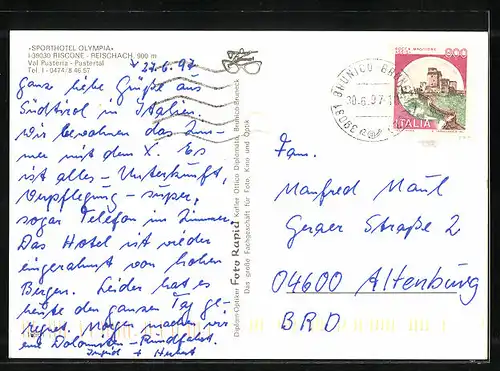 «SPORTHOTEL OLYMPIA»
I-39030 RISCONE - REISCHACH, 960 m
Val Pusteria - Pustertal
Tel. I - 0474/8 46 57
27.6.97
Ganz liebe Grüße aus
Südtirol in Italien.
Wir bewohnen das Zim-
mer mit dem X. Es
ist alles - Unterkunft,
Verpflegung - super,
sogar Telefon im Zimmer.
Das Hotel ist wieder
eingerahmt von hohen
Bergen. Leider hat es
heute den ganzen Tag ge-
regnet. Morgen machen wir
eine Dolomiten-Rundfahrt.
Ingrid + Hubert
Diplom-Optiker Foto Rapid Kofler Ottico Diplomato, Brunico-Bruneck
Das große Fachgeschäft für Foto, Kino und Optik
39031 BRUNICO
30.6.97
900
ITALIA
Fam.
Manfred Maul
Geraer Straße 2
04600 Altenburg
BRD